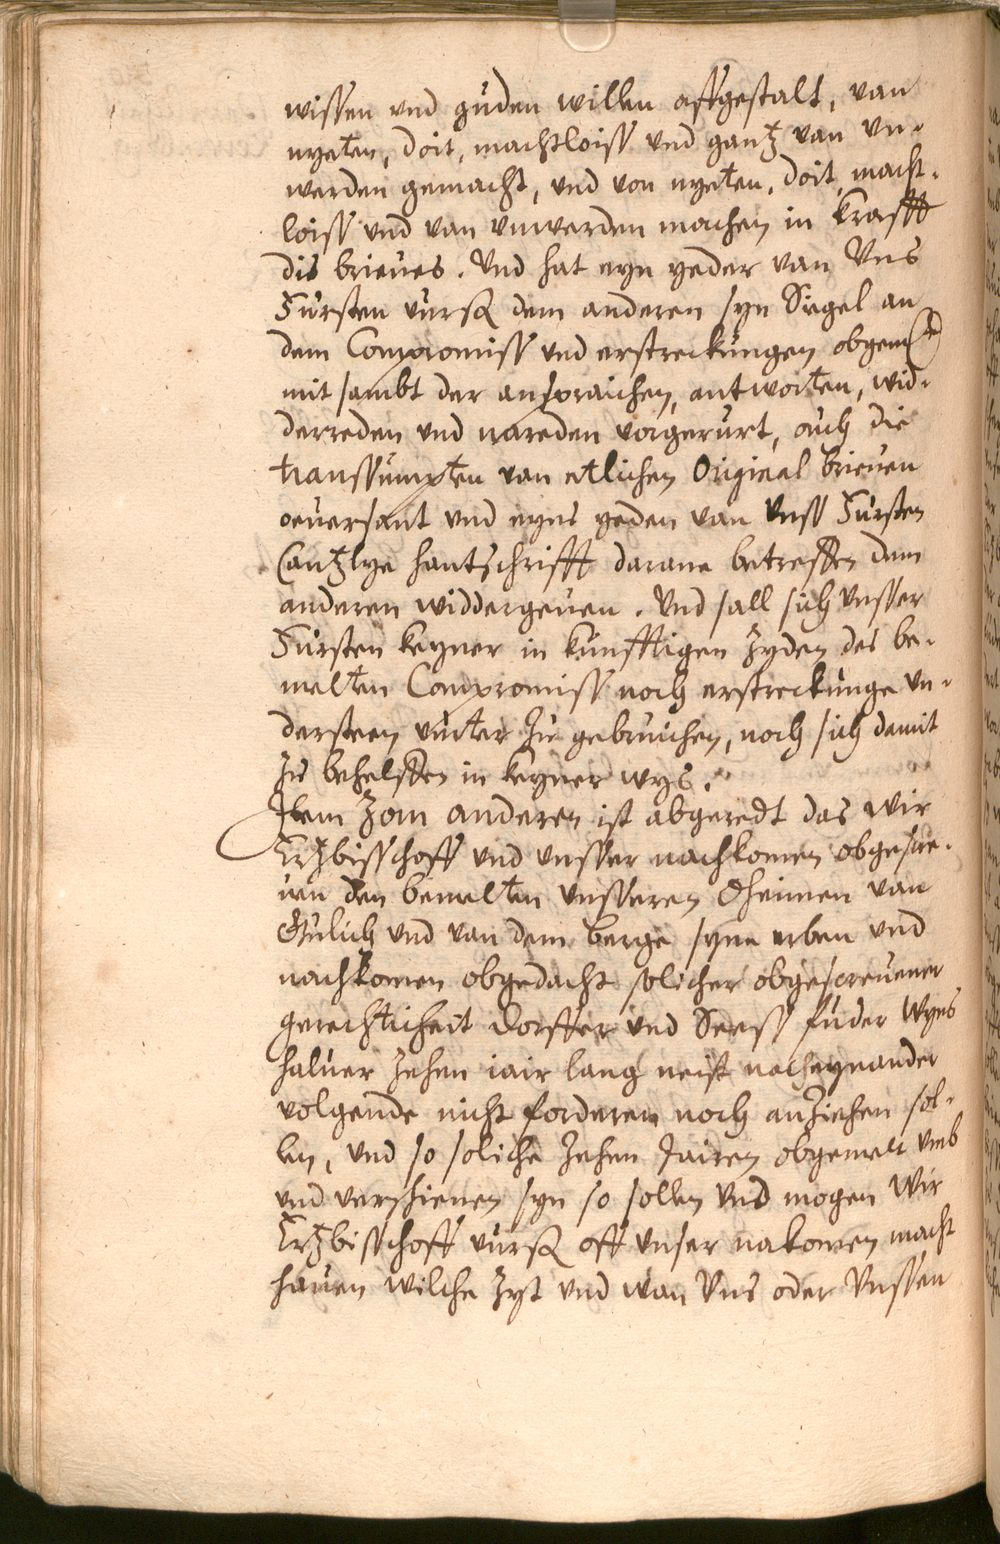 wissen vnd guden willen affgestalt, van
nyeten, doit, machtloiss vnd gantz van vn-
werden gemacht, vnd von nyeten, doit, macht-
loiss vnd van vnwerden machen in krafft
dis brieues. Vnd hat eyn yeder van Vns
Fursten vursz dem anderen syn Siegel an
dem Compromiss vnd erstreckungen obgemelt
mit sambt der anspraichen, antworten, wid-
derreden vnd nareden vorgerurt, auch die
transsumpten van etlichen Originael brieuen
oeuersant vnd eyns yeden van vnss Fursten
Cantzlye hantschrifft darane betreffen dem
anderen widdergeuen. Vnd sall sich vnsser
Fursten keyner in kunfftigen zyden des be-
melten Compromiss noch erstreckunge vn-
dersteen vurter zu gebruichen, noch sich damit
zu behelffen in keyner wys.
Item zom anderen ist abgeredt das wir
Ertzbisschoff vnd vnsser nachkomen obgesc
den bemelten vnsseren Oheimen van
Gulich vnd van dem Berge syne erben vnd
nachkomen obgedacht solicher obgescreuener
gerechticheit Dorffer vnd Seess fuder Wyns
haluer zehen iair lang neist nacheynander
volgende nicht forderen noch anziehen sol-
len, vnd so soliche zehen Jairen obgemelt vmb
vnd verschienen syn so sollen vnd mogen Wir
Ertzbisschoff vursz off vnser nakomen macht
hauen wilche zyt vnd wan Vns oder Vnssen